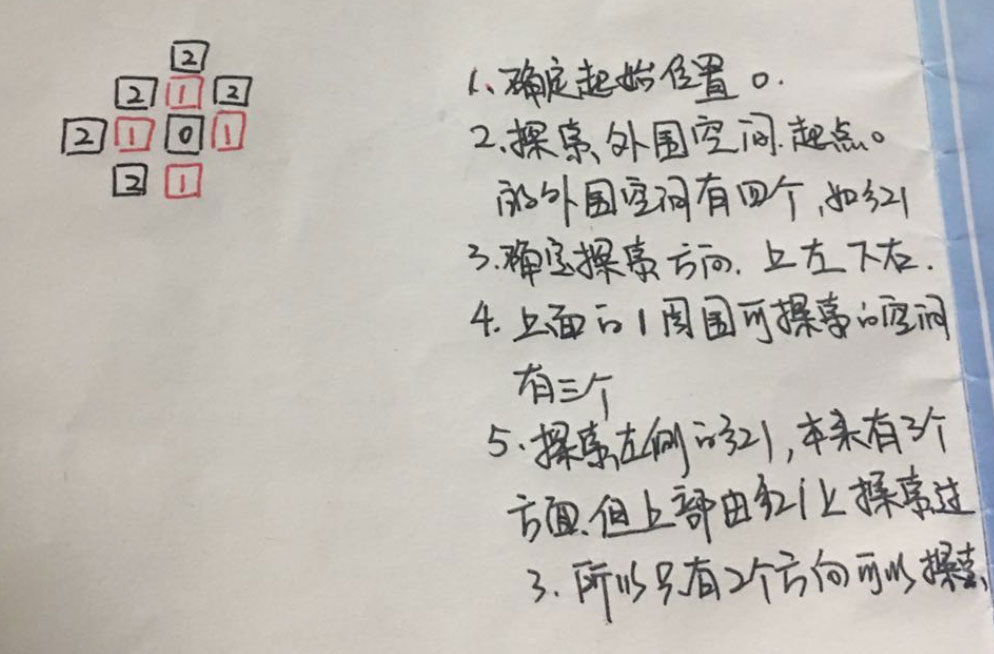 2
2 1 2
2 1 0 1
2 1
1、确定起始位置 0.
2.探索外围空间.起点0
的外围空间有四个,如红1
3.确定探索方向.上左下右.
4.上面的1周围可探索的空间
有三个
5.探索左侧的红1,本来有3个
方面.但上部由红1上探索过
了.所以只有2个方向可以探索